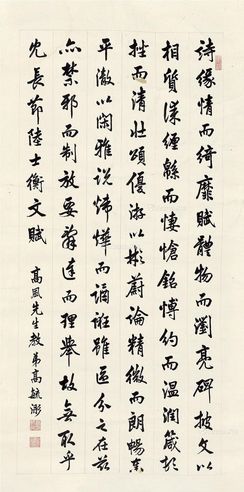 詩緣情而綺靡賦體物而瀏亮碑披文以
相質誄纏綿而悽愴銘博約而溫潤箴頓
挫而清壯頌優游以彬蔚論精微而朗暢奏
平徹以閑雅說煒燁而譎誑雖區分之在茲
亦禁邪而制放要辭達而理舉故無取乎
冗長節陸士衡文賦
高風先生教弟高毓浵